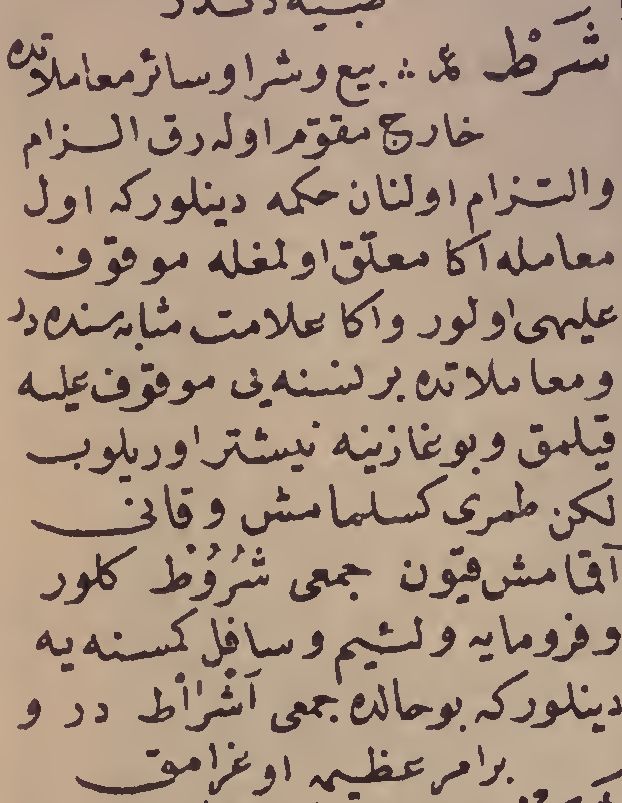 شَرَطْ ... بيع وشرا و سائر معاملاتده
خارج مقوّم اوله رق الـــزام
والتـــزام اولنان حكمه دينلور كه اول
معامله آكا معلّق اولمغله موقوف
عليهى اولور و اكا علامت مثابه سنده در
و معاملاتده بر نسنه يى موقوف عليه
قيلمق و بوغازينه نيشتر اوريلوب
لكن طمرى كسلمامش و قانى
آقمامش قيون جمعى شُرُوُطْ كلور
و فرومايه و لئيم و سافل كمسنه يه
دينلور كه بو حالده جمعى آشْرَاْط در و
بر امر عظيمه اوغرامق